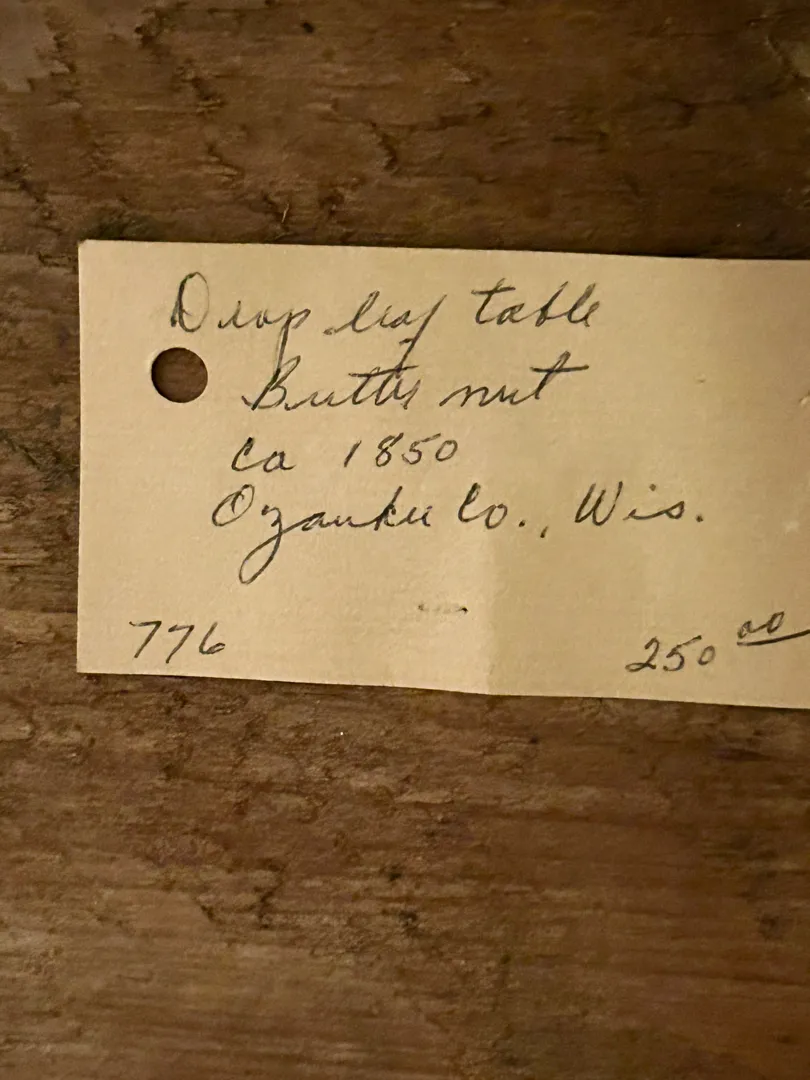 Drop leaf table
Butter nut
ca 1850
Ozaukee Co., Wis.
776 250 00